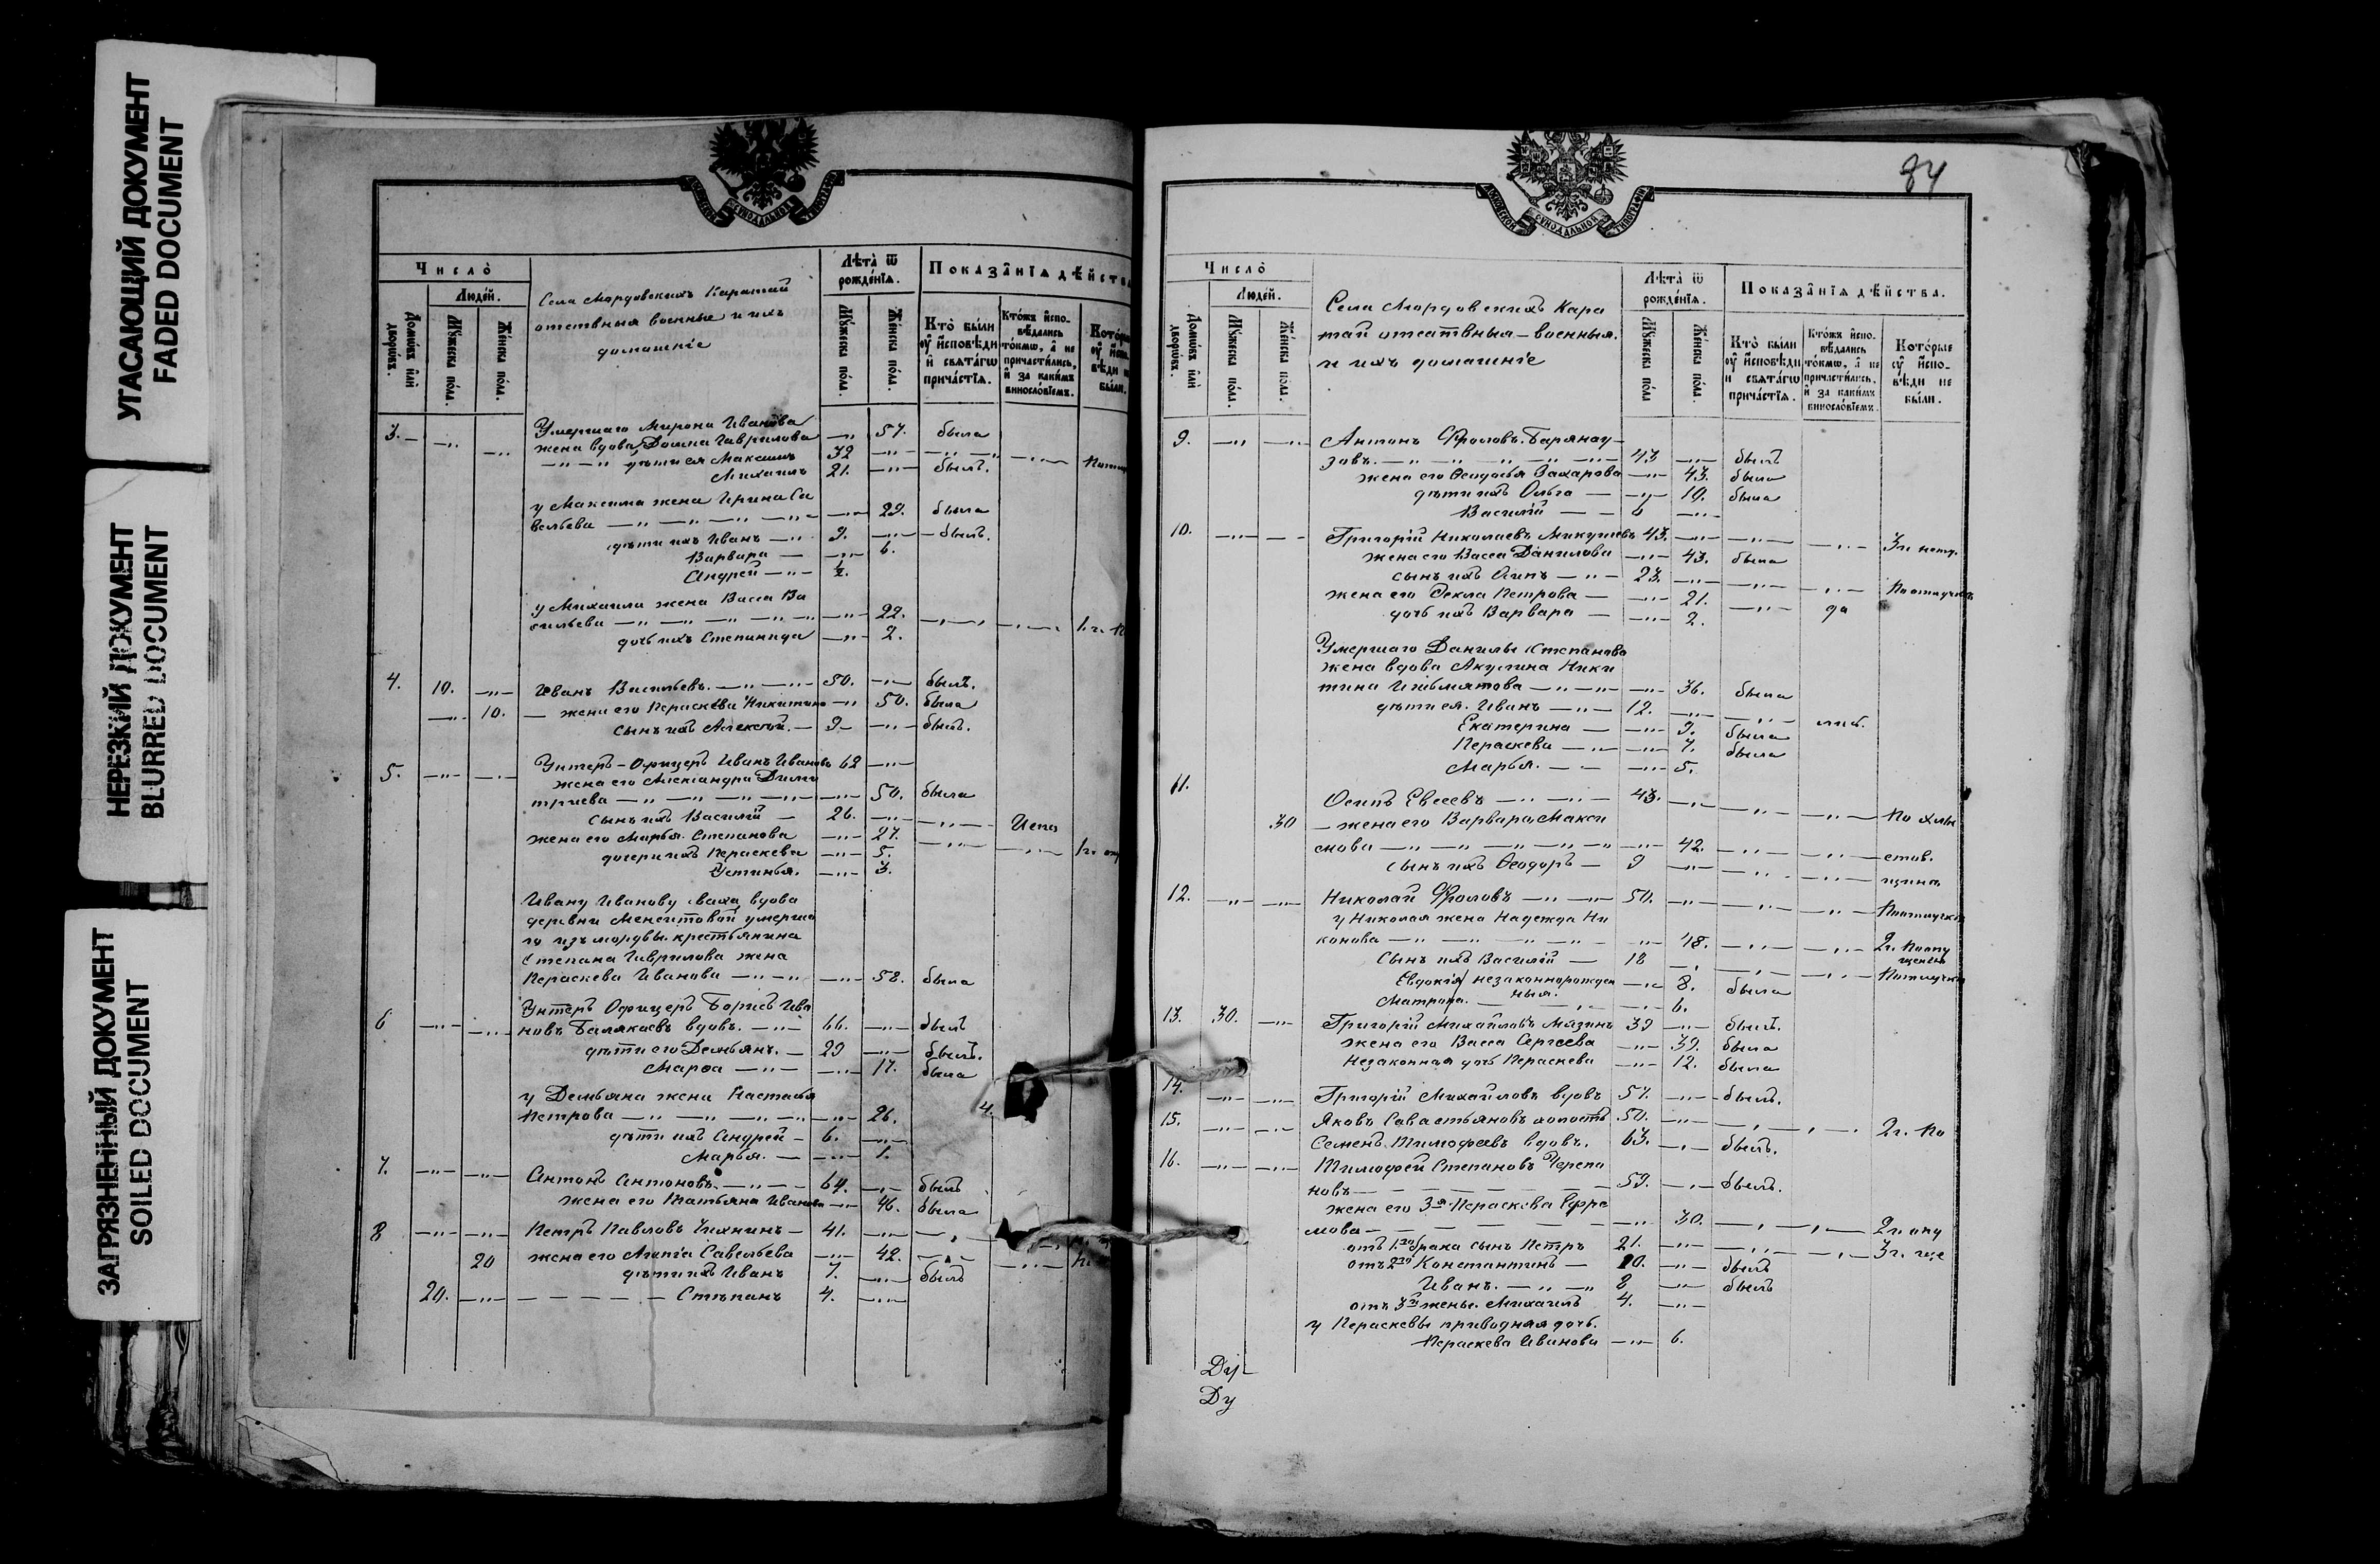 УГАСАЮЩИЙ ДОКУМЕНТ
FADED DOCUMENT
НЕРЕЗКИЙ ДОКУМЕНТ
BLURRED DOCUMENT
ЗАГРЯЗНЕННЫЙ ДОКУМЕНТ
SOILED DOCUMENT
Число̀
Людéй.
Домѡвъ или дворѡвъ.
Мꙋжеска полꙋ.
Женска полꙋ.
Села Мордовскихъ Каратай
отставныя военные и ихъ
домашнiе
Лѣта̀ ѿ рождéнїѧ.
Мꙋжеска полꙋ.
Женска полꙋ.
Показа̑нїѧ дѣ́йства
Кто̀ бы́ли ᲂу҆ и҆сповѣди и҆ свѧта́гѡ прича́стїѧ.
Кто́жъ и҆спо-вѣдались то́кмѡ, а҆ не причасти́лись, и҆ за каки́мъ винослóвїемъ.
3. Умершаго Мирона Иванова
жена вдова Домна Гаврилова 57. была
дѣти ея Максимъ 32
Михаилъ 21. былъ.
у Максима жена Ирина Са
вельева 29. была
дѣти ихъ Иванъ 9. былъ.
Варвара 6.
Андрей ½.
у Михаила жена Васса Ва
сильева 22.
дочь ихъ Степанида 2.
4. 10. Иванъ Васильевъ. 50. былъ.
10. жена его Параскева Никитина 50. была
сынъ ихъ Алексѣй. 9 былъ.
5. Унтеръ-Офицеръ Иванъ Ивановъ 62
жена его Александра Дими
трiева 50. была
сынъ ихъ Василiй 26.
жена его Марья Степанова 27.
дочери ихъ Параскева 5.
Устинья. 3.
Ивану Иванову сваха вдова
деревни Менситовой умерша
го изъ мордвы крестьянина
Степана Гаврилова жена
Параскева Иванова 58. была
6 Унтеръ Офицеръ Борисъ Ива
новъ Балякаевъ вдовъ. 66. былъ
дѣти его Демьянъ. 29 былъ.
Марѳа 17. была
у Демьяна жена Настасья
Петрова 26.
дѣти ихъ Андрей 6.
Марья. 1.
7. Антонъ Антоновъ. 64. былъ
жена его Татьяна Иванова 46. была
8 Петръ Павловъ 41.
20 жена его Агапiя Савельева 42.
дѣти ихъ Иванъ 7. былъ
20. Степанъ 4.
84
Число̀
Людéй.
Домѡвъ или дворѡвъ.
Мꙋжеска полꙋ.
Женска полꙋ.
Села Мордовскихъ Кара
тай отставныя-военныя.
и ихъ домашнiе
Лѣта̀ ѿ рождéнїѧ.
Мꙋжеска полꙋ.
Женска полꙋ.
Показа̑нїѧ дѣ́йства.
Кто̀ бы́ли ᲂу҆ и҆сповѣди и҆ свѧта́гѡ прича́стїѧ.
Кто́жъ и҆спо-вѣдались то́кмѡ, а҆ не причасти́лись, и҆ за каки́мъ винослóвїемъ.
Кото́рые ᲂу҆ и҆спо-вѣди не бы́ли.
9. Антонъ Фроловъ
43 былъ
жена его Ѳеодосья Захарова 43. была
дѣти ихъ Ольга 10. была
Василiй 6
10. Григорiй Николаевъ Микушевъ 43.
жена его Васса Данилова 43. была
сынъ ихъ Осипъ 23.
жена его Ѳекла Петрова 21.
дочь ихъ Варвара 2.
Умершаго Данилы Степанова
жена вдова Акулина Ники
тина 36. была
дѣти ея. Иванъ 12.
Екатерина 9. была
Параскева 7. была
Марья. 5.
11. Осипъ Евсеевъ 43.
30 жена его Варвара Макси
мова 42.
сынъ ихъ Ѳеодоръ 9
12. Николай Фроловъ 50.
у Николая жена Надежда Ни
конова 48.
сынъ ихъ Василiй 18
Евдокiя незаконнорожден 8. была
Матрона. ныя. 6.
13. 30. Григорiй Михайловъ Мязинъ 39 былъ.
жена его Васса Сергеева 39. была
Незаконная дочь Параскева 12. была
14. Григорiй Михайловъ вдовъ 57. былъ.
15. Яковъ Савастьяновъ холостъ 50. 2 г. По
Семенъ Тимофеевъ вдовъ. 63. былъ.
16. Тимофей Степановъ Черепа
новъ 59. былъ.
жена его 3я Параскева Ефре
мова 30.
отъ 1го брака сынъ Петръ 21.
отъ 2го Константинъ 20. былъ
Иванъ. 8 былъ
отъ 3й жены. Михаилъ 4.
у Параскевы приводная дочь.
Параскева Иванова 6.